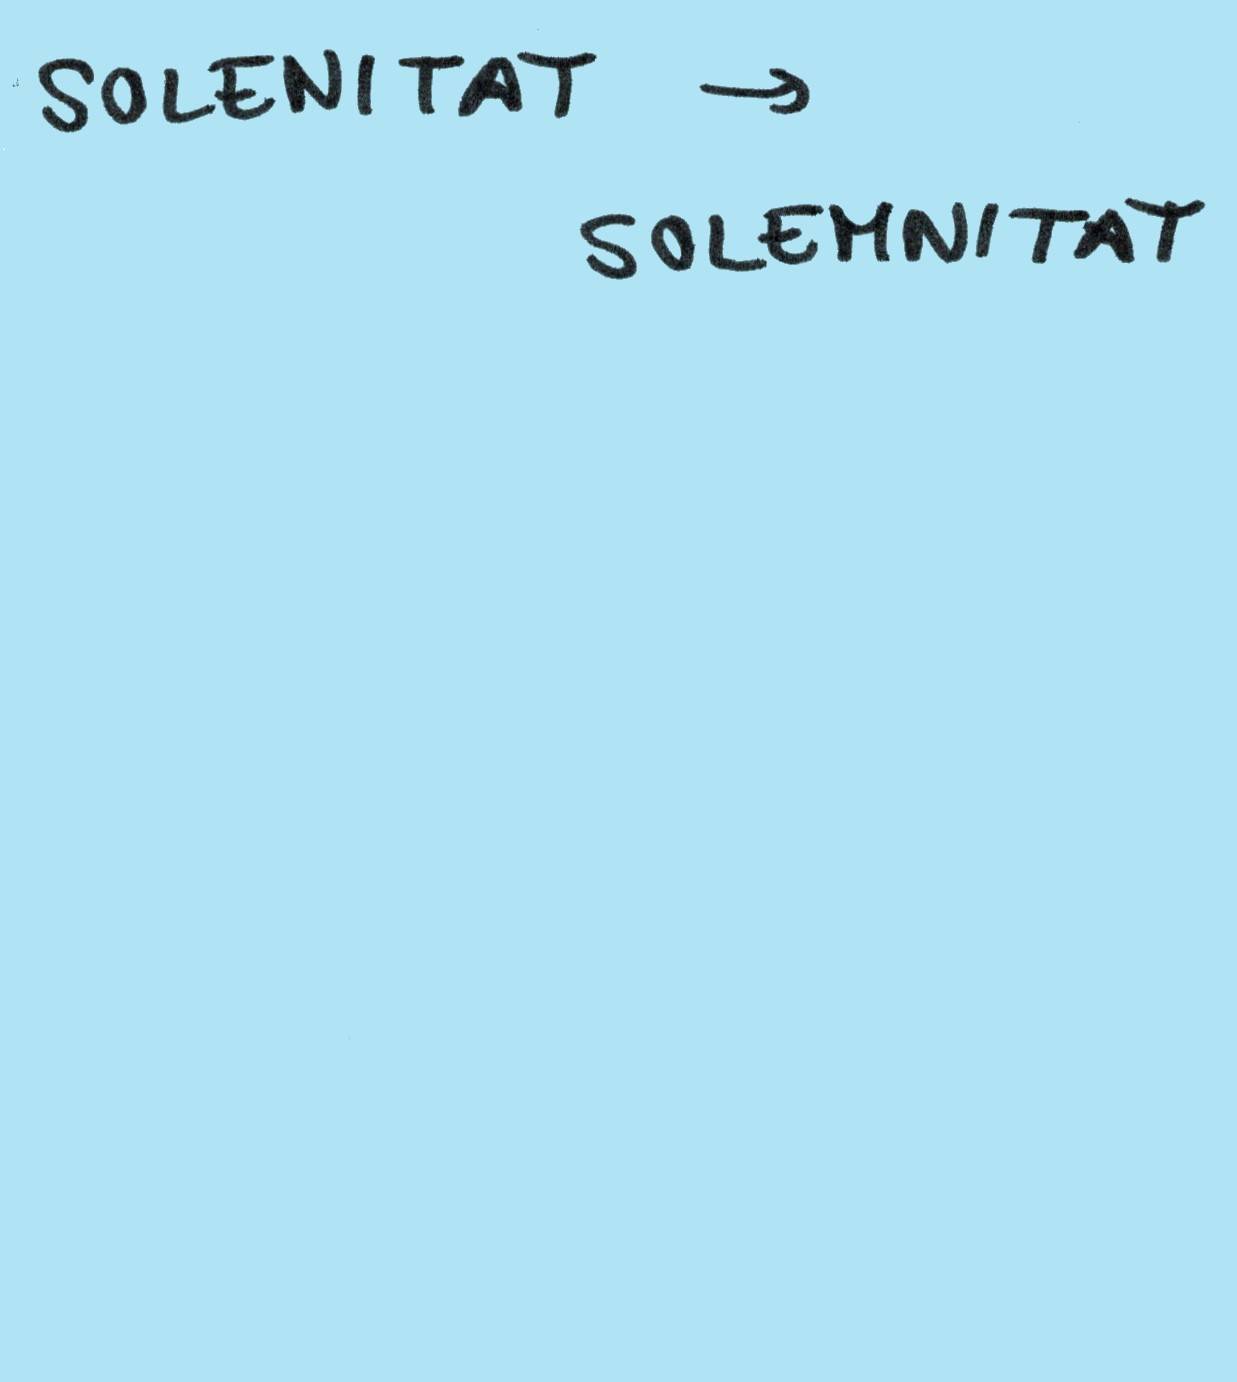 SOLENITAT →
SOLEMNITAT